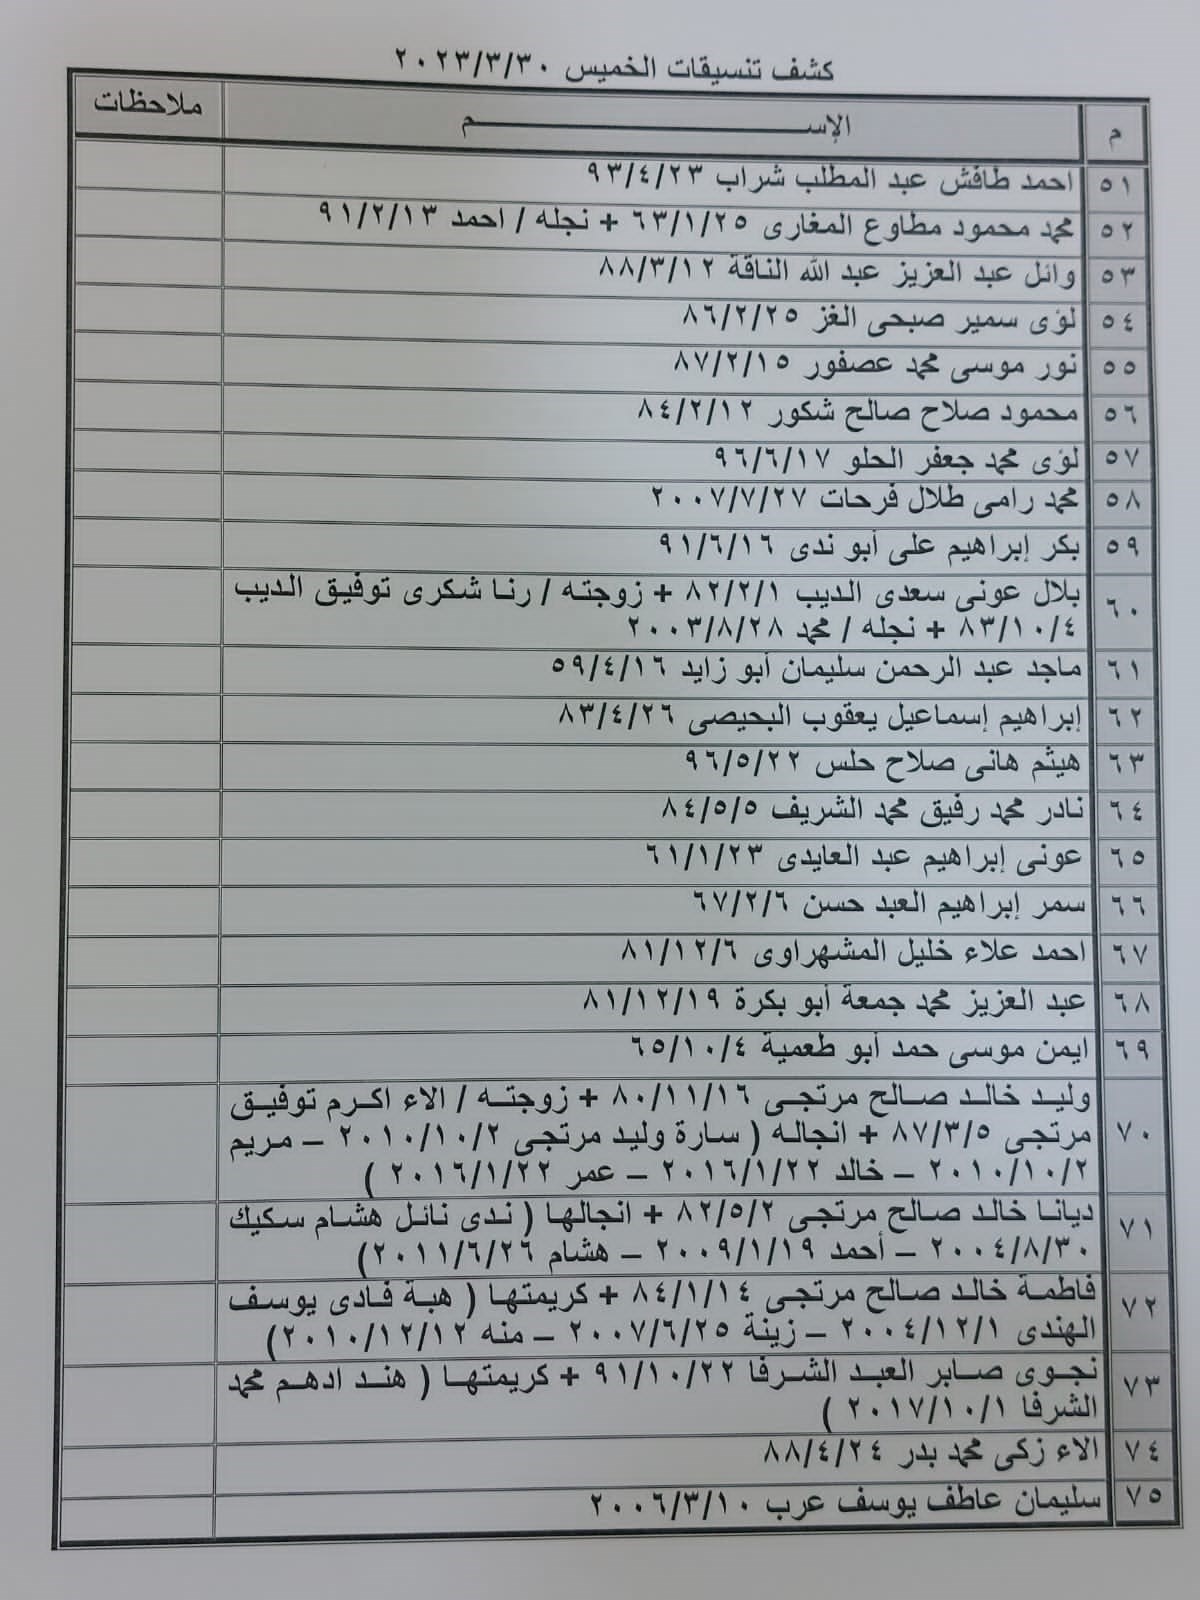 كشف تنسيقات الخميس ٢٠٢٣/٣/٣٠
م الإســـــــم ملاحظات
٥١ احمد طافش عبد المطلب شراب ٩٣/٤/٢٣
٥٢ محمد محمود مطاوع المغارى ٦٣/١/٢٥ + نجله / احمد ٩١/٢/١٣
٥٣ وائل عبد العزيز عبد الله الناقة ٨٨/٣/١٢
٥٤ لؤى سمير صبحى الغز ٨٦/٢/٢٥
٥٥ نور موسى محمد عصفور ٨٧/٢/١٥
٥٦ محمود صلاح صالح شكور ٨٤/٢/١٢
٥٧ لؤى محمد جعفر الحلو ٩٦/٦/١٧
٥٨ محمد رامى طلال فرحات ٢٠٠٧/٧/٢٧
٥٩ بكر إبراهيم على أبو ندى ٩١/٦/١٦
٦٠ بلال عونى سعدى الديب ٨٢/٢/١ + زوجته / رنا شكرى توفيق الديب
٨٣/١٠/٤ + نجله / محمد ٢٠٠٣/٨/٢٨
٦١ ماجد عبد الرحمن سليمان أبو زايد ٥٩/٤/١٦
٦٢ إبراهيم إسماعيل يعقوب البحيصى ٨٣/٤/٢٦
٦٣ هيثم هانى صلاح حلس ٩٦/٥/٢٢
٦٤ نادر محمد رفيق محمد الشريف ٨٤/٥/٥
٦٥ عونى إبراهيم عبد العايدى ٦١/١/٢٣
٦٦ سمر إبراهيم العبد حسن ٦٧/٢/٦
٦٧ احمد علاء خليل المشهراوى ٨١/١٢/٦
٦٨ عبد العزيز محمد جمعة أبو بكرة ٨١/١٢/١٩
٦٩ ايمن موسى حمد أبو طعمية ٦٥/١٠/٤
٧٠ وليد خالد صالح مرتجى ٨٠/١١/١٦ + زوجته / الاء اكرم توفيق
مرتجى ٨٧/٣/٥ + انجاله ( سارة وليد مرتجى ٢٠١٠/١٠/٢ – مريم
٢٠١٠/١٠/٢ – خالد ٢٠١٦/١/٢٢ – عمر ٢٠١٦/١/٢٢ )
٧١ ديانا خالد صالح مرتجى ٨٢/٥/٢ + انجالها ( ندى نائل هشام سكيك
٢٠٠٤/٨/٣٠ – أحمد ٢٠٠٩/١/١٩ – هشام ٢٠١١/٦/٢٦)
٧٢ فاطمة خالد صالح مرتجى ٨٤/١/١٤ + كريمتها ( هبة فادى يوسف
الهندى ٢٠٠٤/١٢/١ – زينة ٢٠٠٧/٦/٢٥ – منه ٢٠١٠/١٢/١٢)
٧٣ نجوى صابر العبد الشرفا ٩١/١٠/٢٢ + كريمتها ( هند ادهم محمد
الشرفا ٢٠١٧/١٠/١ )
٧٤ الاء زكى محمد بدر ٨٨/٤/٢٤
٧٥ سليمان عاطف يوسف عرب ٢٠٠٦/٣/١٠